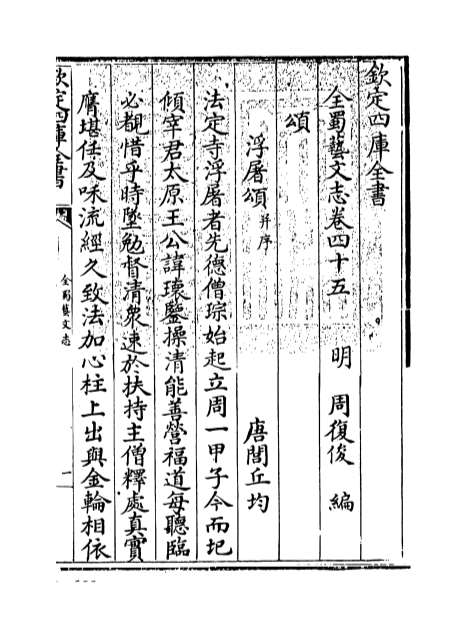 欽定四庫全書
全蜀藝文志卷四十五
明 周復俊 編
頌
浮屠頌并序
唐閭丘均
法定寺浮屠者先德僧琮始起立周一甲子今而圮
傾宰君太原王公諱瓌鑒操清能善營福道每聽臨
必覩惜乎時墜勉督清衆速於扶持主僧釋處真實
膺堪任及味流經久致法加心柱上出與金輪相依
欽定四庫全書
全蜀藝文志
一